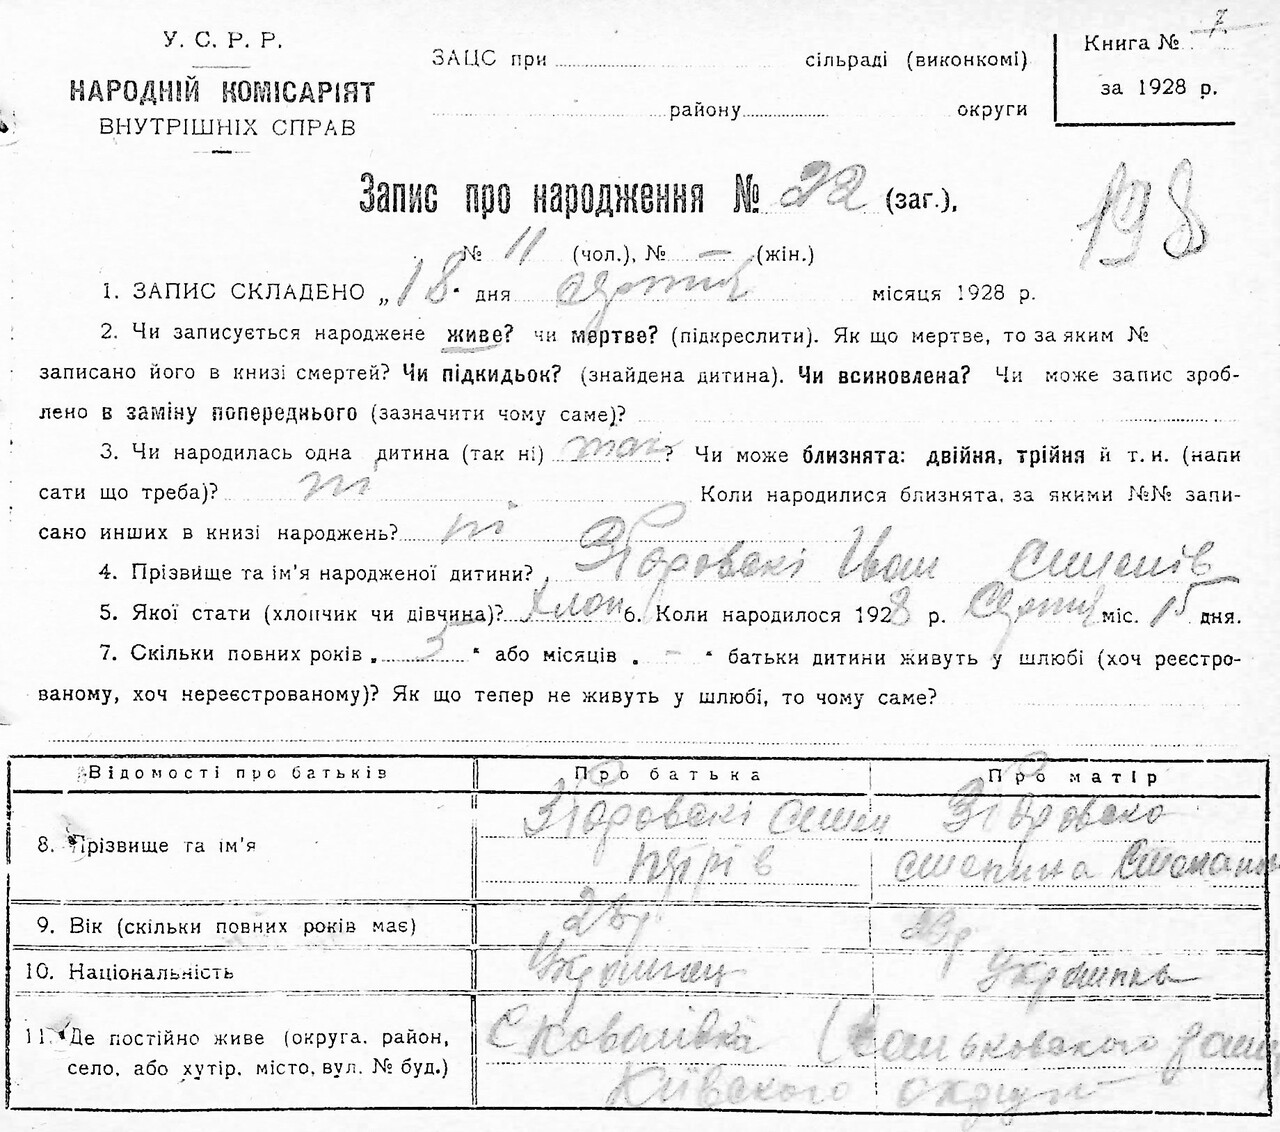 У. С. Р. Р.
НАРОДНІЙ КОМІСАРІЯТ
ВНУТРІШНІХ СПРАВ
ЗАЦС при сільраді (виконкомі)
району округи
Книга № 7
за 1928 р.
Запис про народження № 22 (заг.),
198
№ 11 (чол.), № — (жін.)
1. ЗАПИС СКЛАДЕНО „18" дня серпня місяця 1928 р.
2. Чи записується народжене живе? чи мертве? (підкреслити). Як що мертве, то за яким №
записано його в книзі смертей? Чи підкидьок? (знайдена дитина). Чи всиновлена? Чи може запис зроб-
лено в заміну попереднього (зазначити чому саме)?
3. Чи народилась одна дитина (так ні) так? Чи може близнята: двійня, трійня й т. и. (напи
сати що треба)? ні Коли народилися близнята, за якими №№ запи-
сано инших в книзі народжень? ні
4. Прізвище та ім'я народженої дитини? Іван
5. Якої стати (хлопчик чи дівчина)? хлоп 6. Коли народилося 1928 р. Серпня міс. 15 дня.
7. Скільки повних років „ 5 " або місяців „ - " батьки дитини живуть у шлюбі (хоч реєстро-
ваному, хоч нереєстрованому)? Як що тепер не живуть у шлюбі, то чому саме?
Відомості про батьків Про батька Про матір
8. Прізвище та ім'я
Петрів
9. Вік (скільки повних років має) 23р
10. Національність Українец Українка
11. Де постійно живе (округа, район,
село, або хутір, місто, вул. № буд.)
С Ковалівка
Київського округу